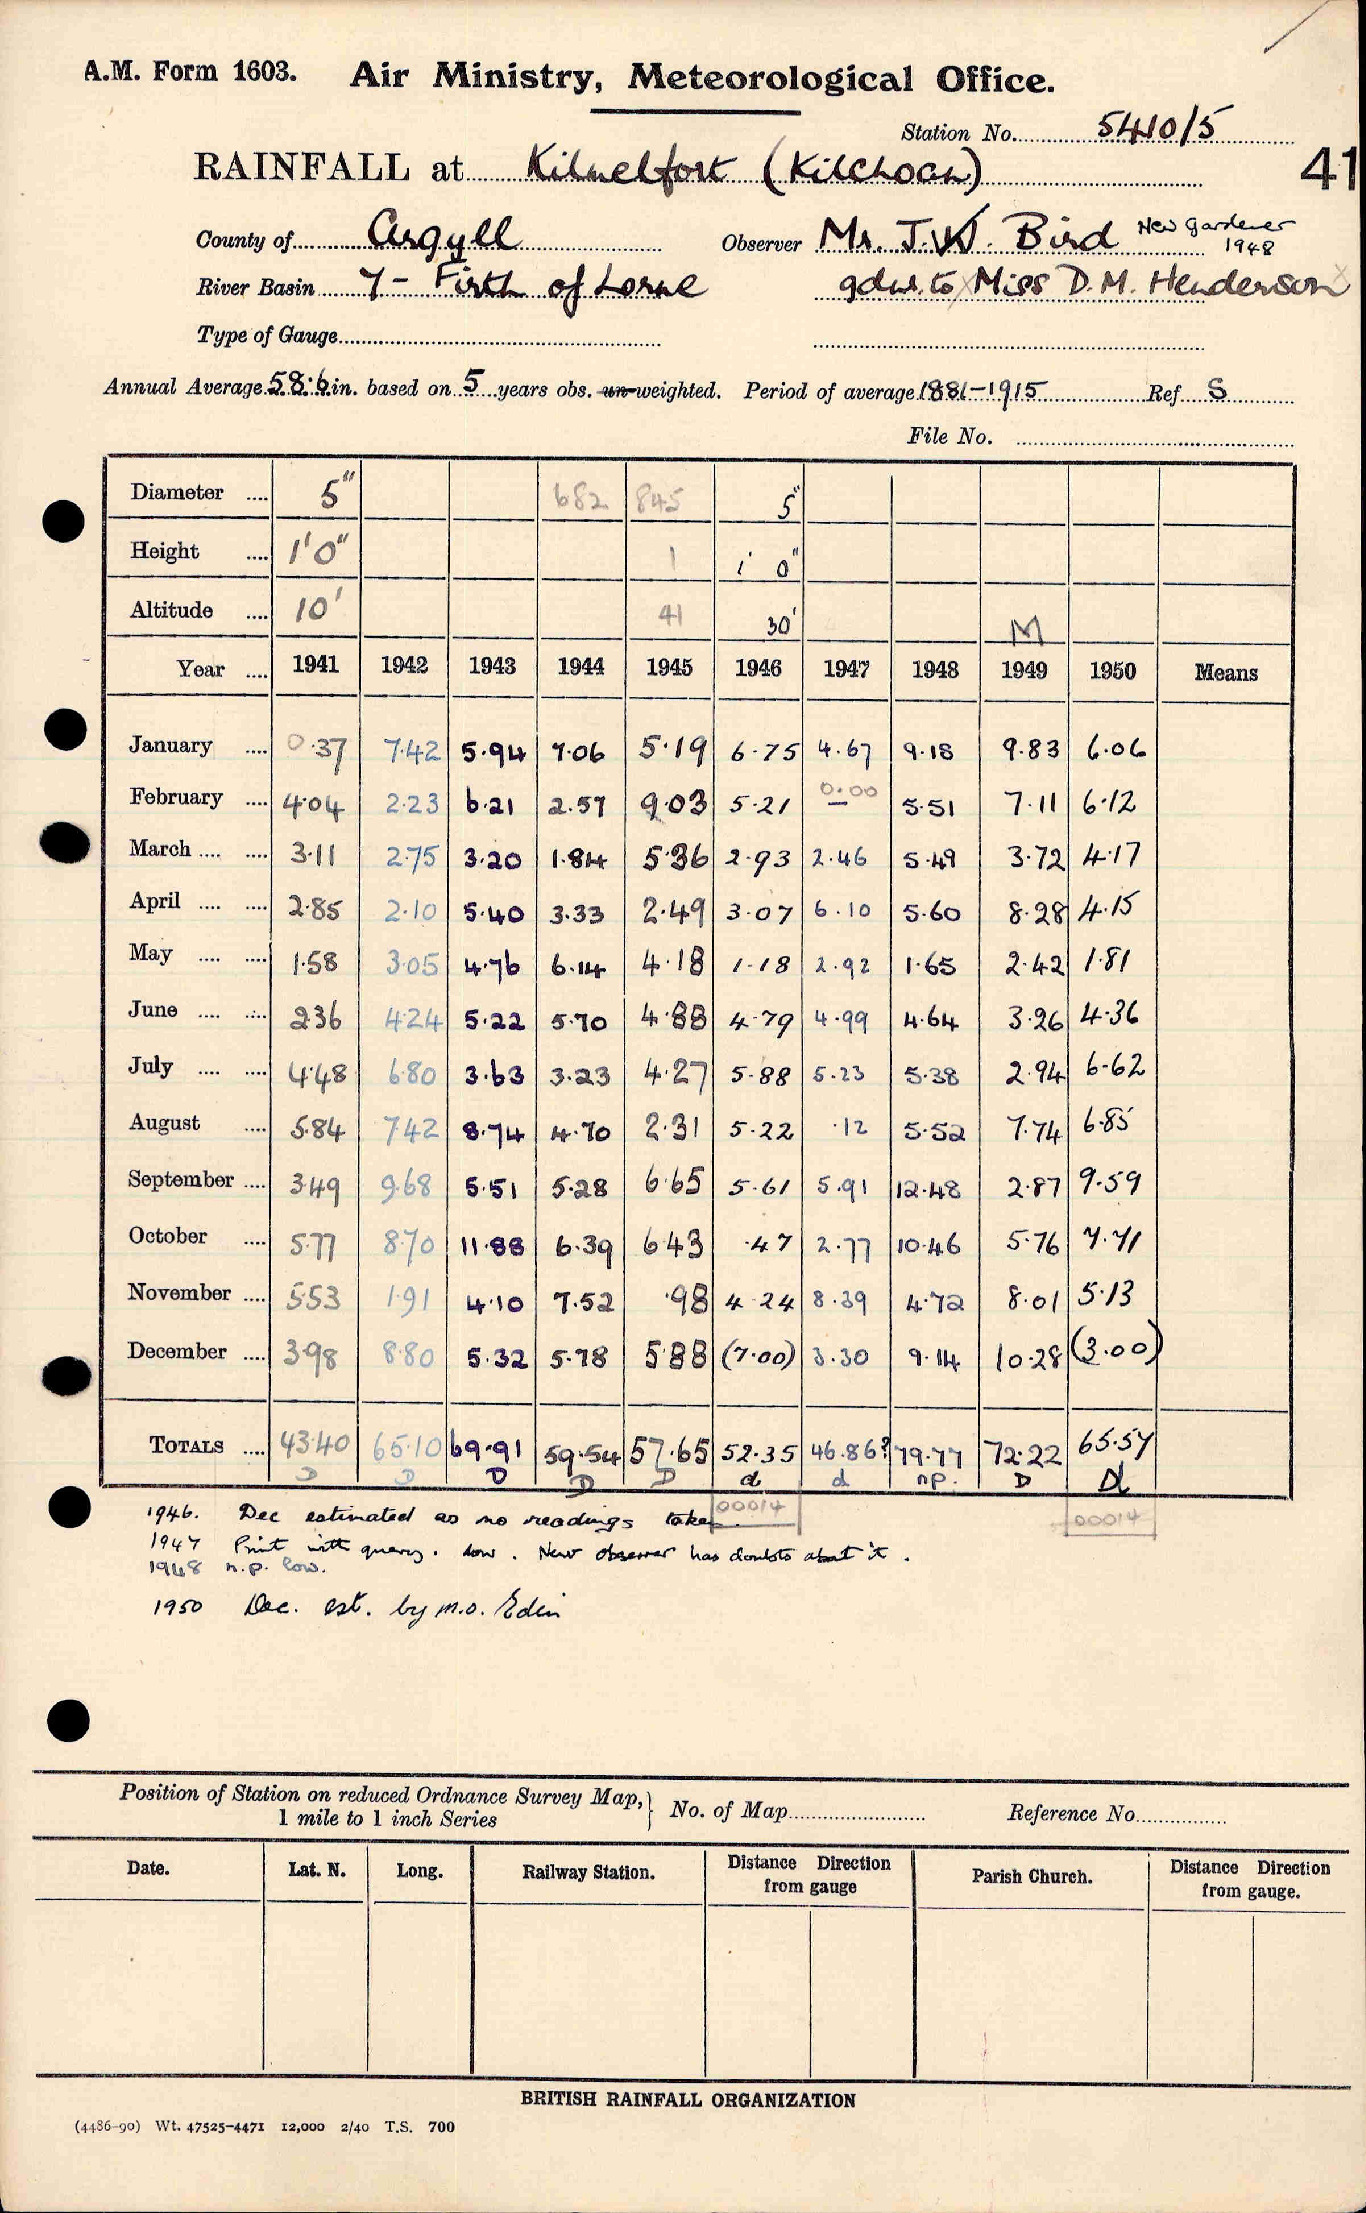 A.M. Form 1603. Air Ministry, Meteorological Office.
Station No. 5410/5
RAINFALL at Kilmelfort (Kilchoan)
41
County of Argyll Observer Mr. J.W. Bird New Gardener 1948
River Basin 7 - Firth of Lorne gdnr. to Miss D.M. Henderson
Type of Gauge
Annual Average 58.6 in. based on 5 years obs. un-weighted. Period of average 1881-1915 Ref. S
File No.
Diameter .... 5" 682 845 5"
Height .... 1'0" 1 1 0"
Altitude .... 10' 41 30' M
Year .... 1941 1942 1943 1944 1945 1946 1947 1948 1949 1950 Means
January .... 0.37 7.42 5.94 7.06 5.19 6.75 4.67 9.18 9.83 6.06
February .... 4.04 2.23 6.21 2.57 9.03 5.21 0.00 5.51 7.11 6.12
March .... .... 3.11 2.75 3.20 1.84 5.36 2.93 2.46 5.49 3.72 4.17
April .... .... 2.85 2.10 5.40 3.33 2.49 3.07 6.10 5.60 8.28 4.15
May .... .... 1.58 3.05 4.76 6.14 4.18 1.18 2.92 1.65 2.42 1.81
June .... .... 2.36 4.24 5.22 5.70 4.88 4.79 4.99 4.64 3.26 4.36
July .... .... 4.48 6.80 3.63 3.23 4.27 5.88 5.23 5.38 2.94 6.62
August .... 5.84 7.42 8.74 4.70 2.31 5.22 .12 5.52 7.74 6.85
September .... 3.49 9.68 5.51 5.28 6.65 5.61 5.91 12.48 2.87 9.59
October .... 5.77 8.70 11.88 6.39 6.43 .47 2.77 10.46 5.76 7.71
November .... 5.53 1.91 4.10 7.52 .98 4.24 8.39 4.72 8.01 5.13
December .... 3.98 8.80 5.32 5.78 5.88 (7.00) 3.30 9.14 10.28 (3.00)
TOTALS .... 43.40 65.10 69.91 59.54 57.65 52.35 46.86? 79.77 72.22 65.57
D D D D D d d n.p. D D
00014 00014
1946. Dec estimated as no readings taken.
1947 Print with query. Low. New observer has doubts about it.
1948 n.p. low.
1950 Dec. est. by M.O. Edin
Position of Station on reduced Ordnance Survey Map, 1 mile to 1 inch Series } No. of Map Reference No.
Date. Lat. N. Long. Railway Station. Distance Direction from gauge Parish Church. Distance Direction from gauge.
BRITISH RAINFALL ORGANIZATION
(4486-90) Wt. 47525-4471 12,000 2/40 T.S. 700